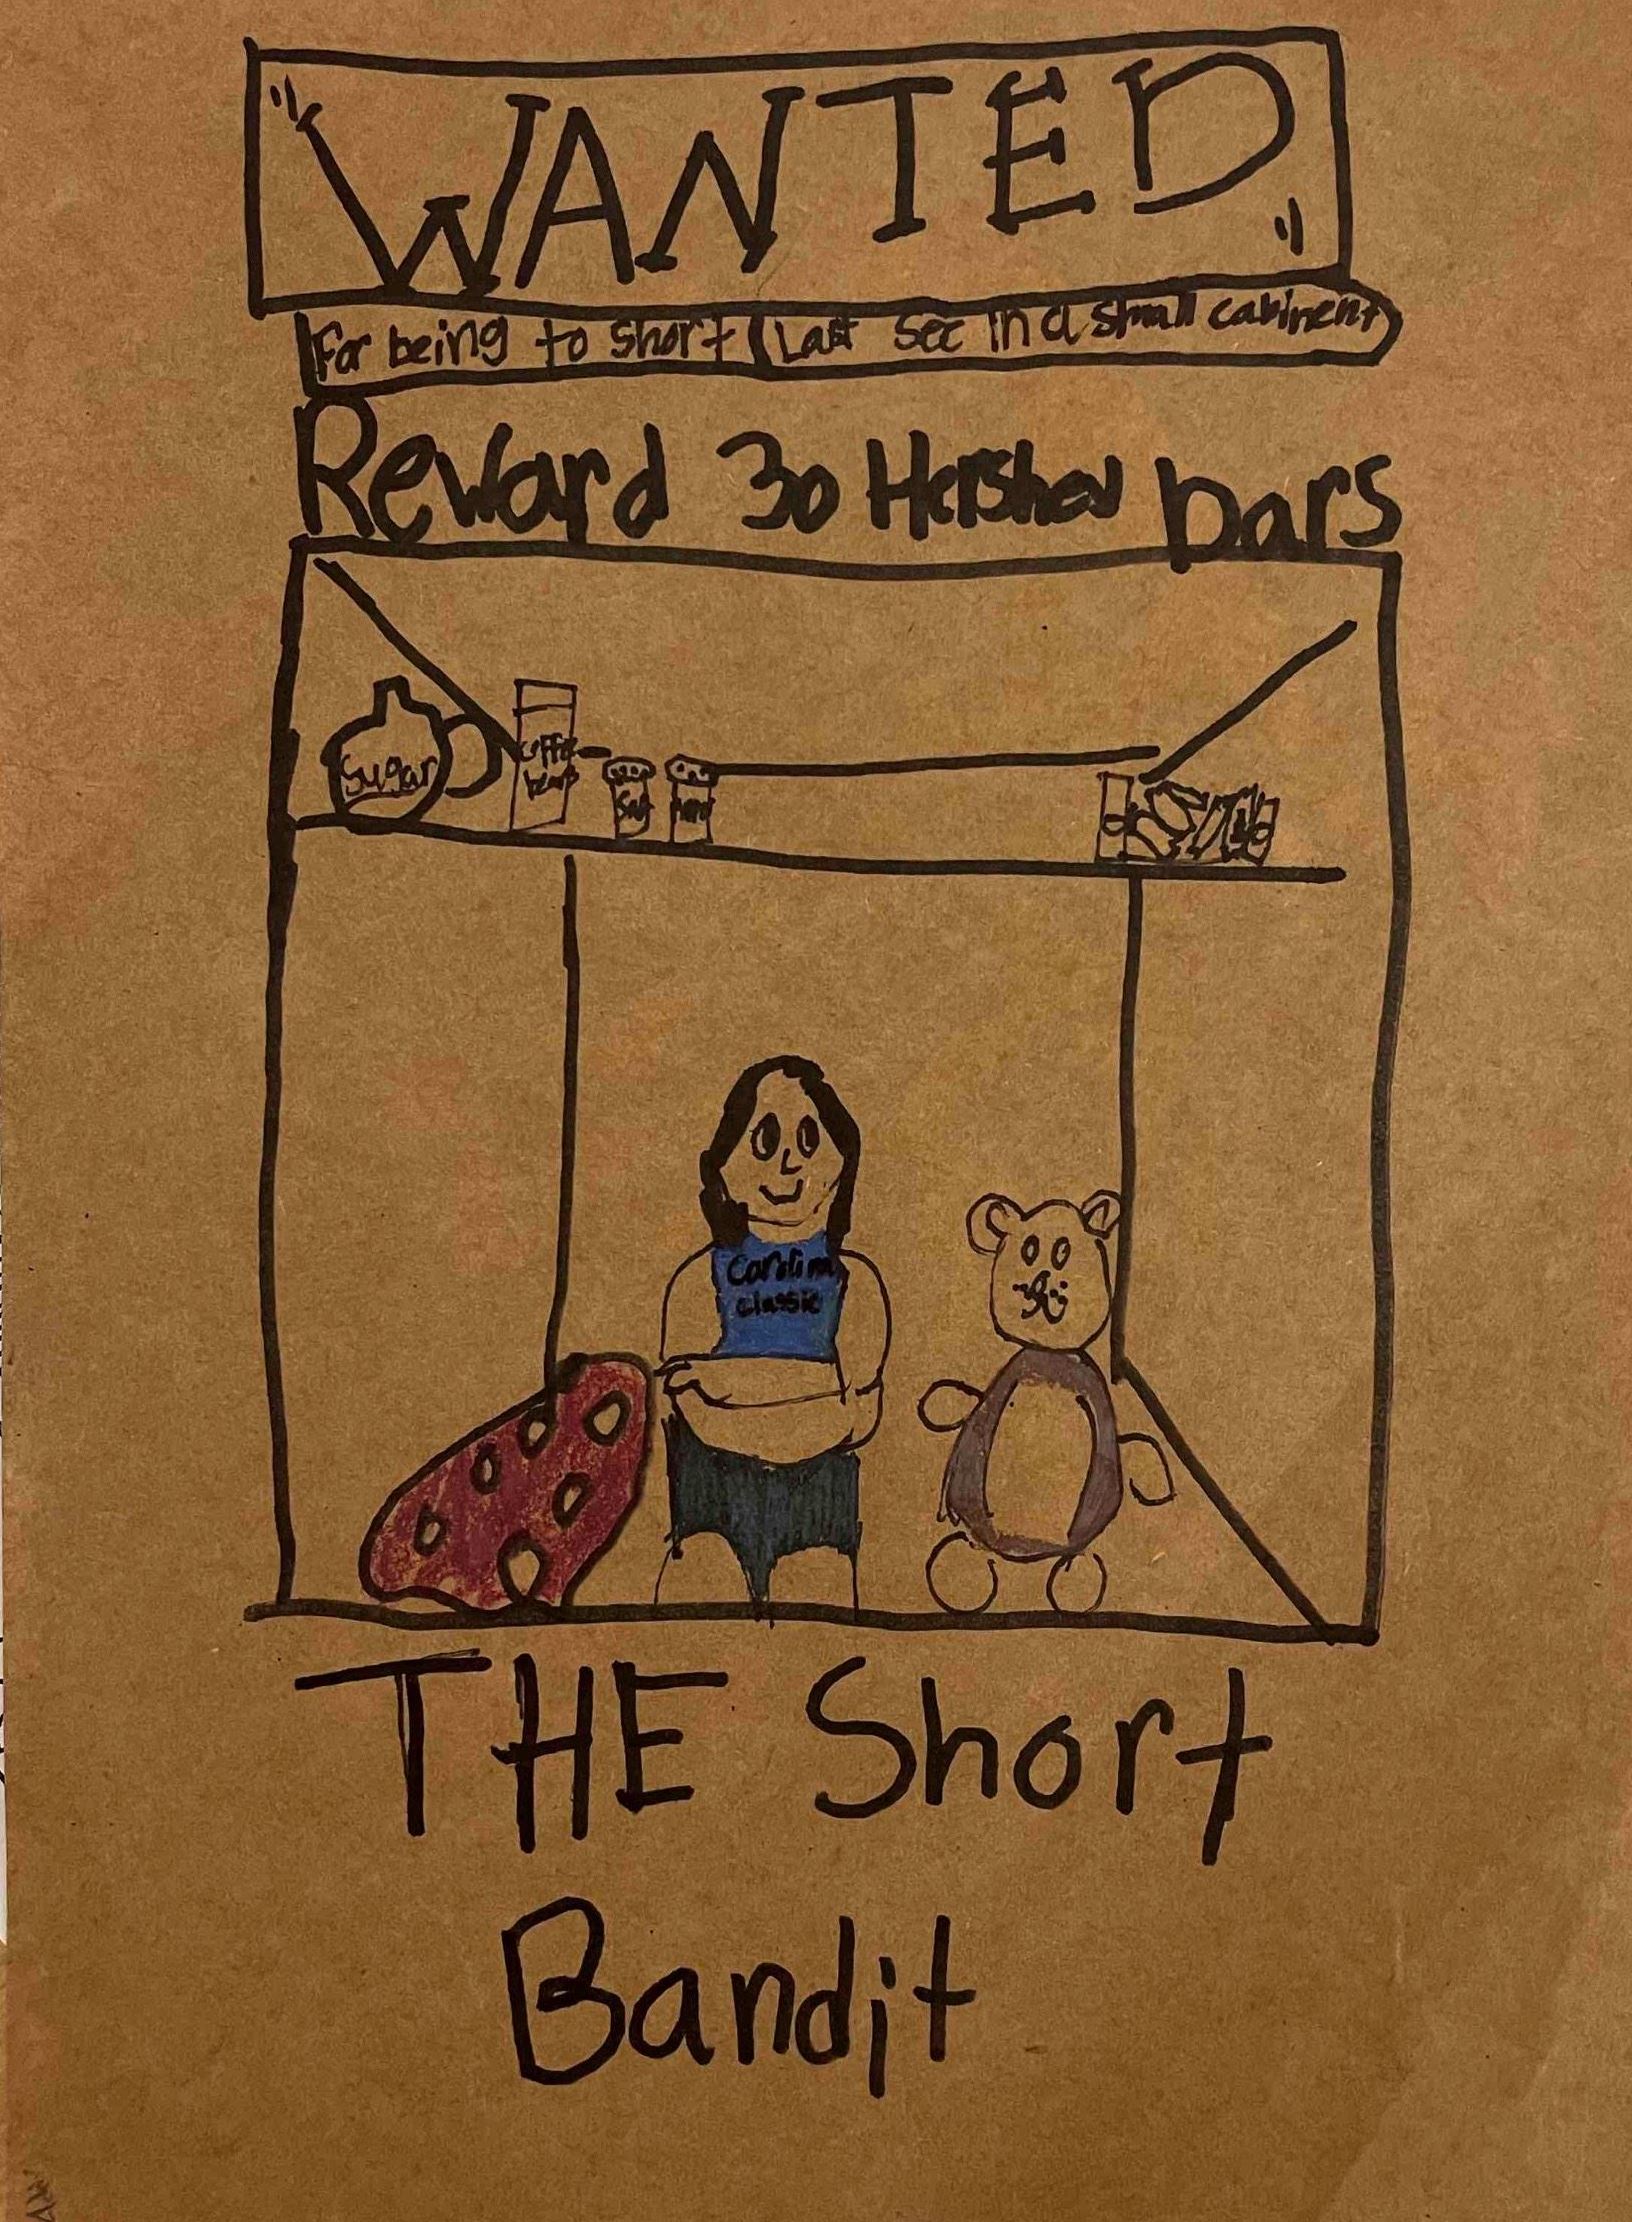 "WANTED"
For being to short Last See in a small cabinent
Reward 30 Hershey bars
Sugar
Coffee
beans
Salt
Carolina
classic
THE Short
Bandit